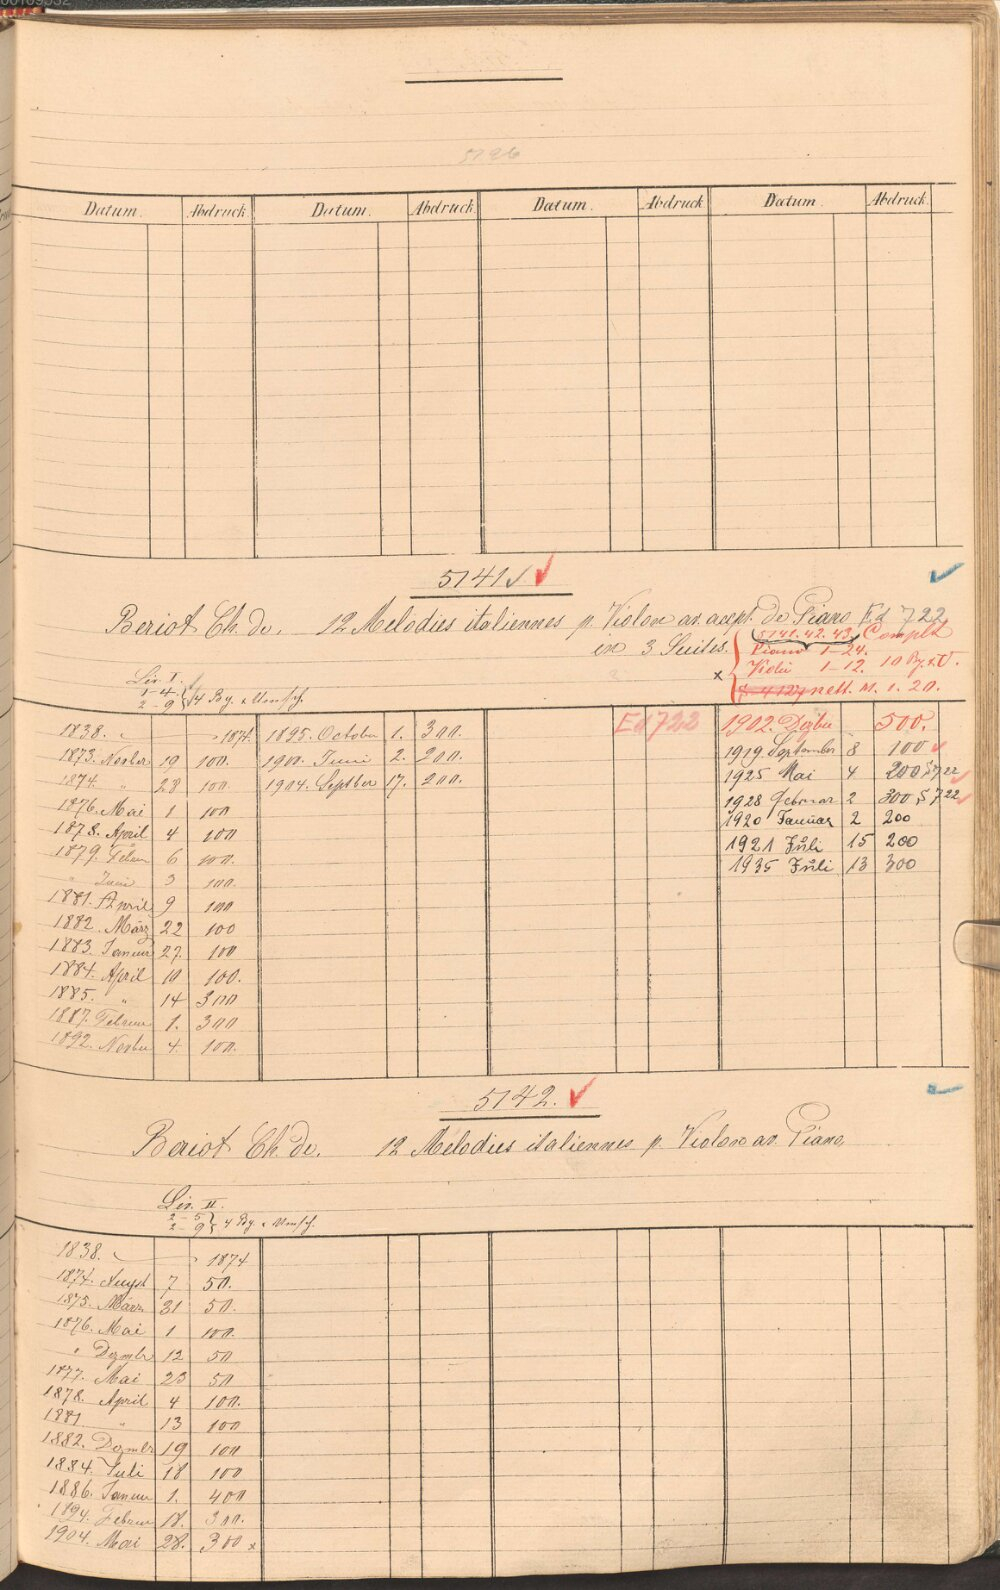 5126
Datum. Abdruck. Datum. Abdruck. Datum. Abdruck Datum. Abdruck.
5141
Beriot Ch. de. 12 Melodies italiennes p. Violon av. acpt. de Piano Ed 722
in 3 Suites.
5141. 42. 43. Complt
Piano 1-24.
Violin 1-12. 10 Bg. t. V.
x nett. M. 1. 20.
Liv. I.
1-4.
2-9 4 Bg. x Umsch.
1838. 1874.
1873. Novber 19 100.
1874. " 28 100
1876. Mai 1 100
1878. April 4 100
1879. Febru 6 100.
" Juni 3 100.
1881. April 9 100
1882. März 22 100
1883. Januar 27. 100
1884. April 10 100.
1885. " 14 300
1887. Februar 1. 300
1892. Novbr 4. 100.
1895. October 1. 300.
1900. Juni 2. 200.
1904. Septber 17. 200.
Ed 722 1902 Dezber 500.
1919 September 8 100
1925 Mai 4 200 S 722
1928 Februar 2 300 S 722
1920 Januar 2 200
1921 Juli 15 200
1935 Juli 13 300
5142.
Beriot Ch. de. 12 Melodies italiennes p. Violon av. Piano
Liv. II.
2-5
2-9 4 Bg. x Umsch.
1838. 1874
1874. August 7 50.
1875. März 31 50.
1876. Mai 1 100.
" Dezmbr 12 50
1877. Mai 23 50
1878. April 4 100.
1881 " 13 100
1882. Dezmbr 19 100
1884. Juli 18 100
1886. Januar 1. 400
1894. Februar 18. 300.
1904. Mai 28. 300 x